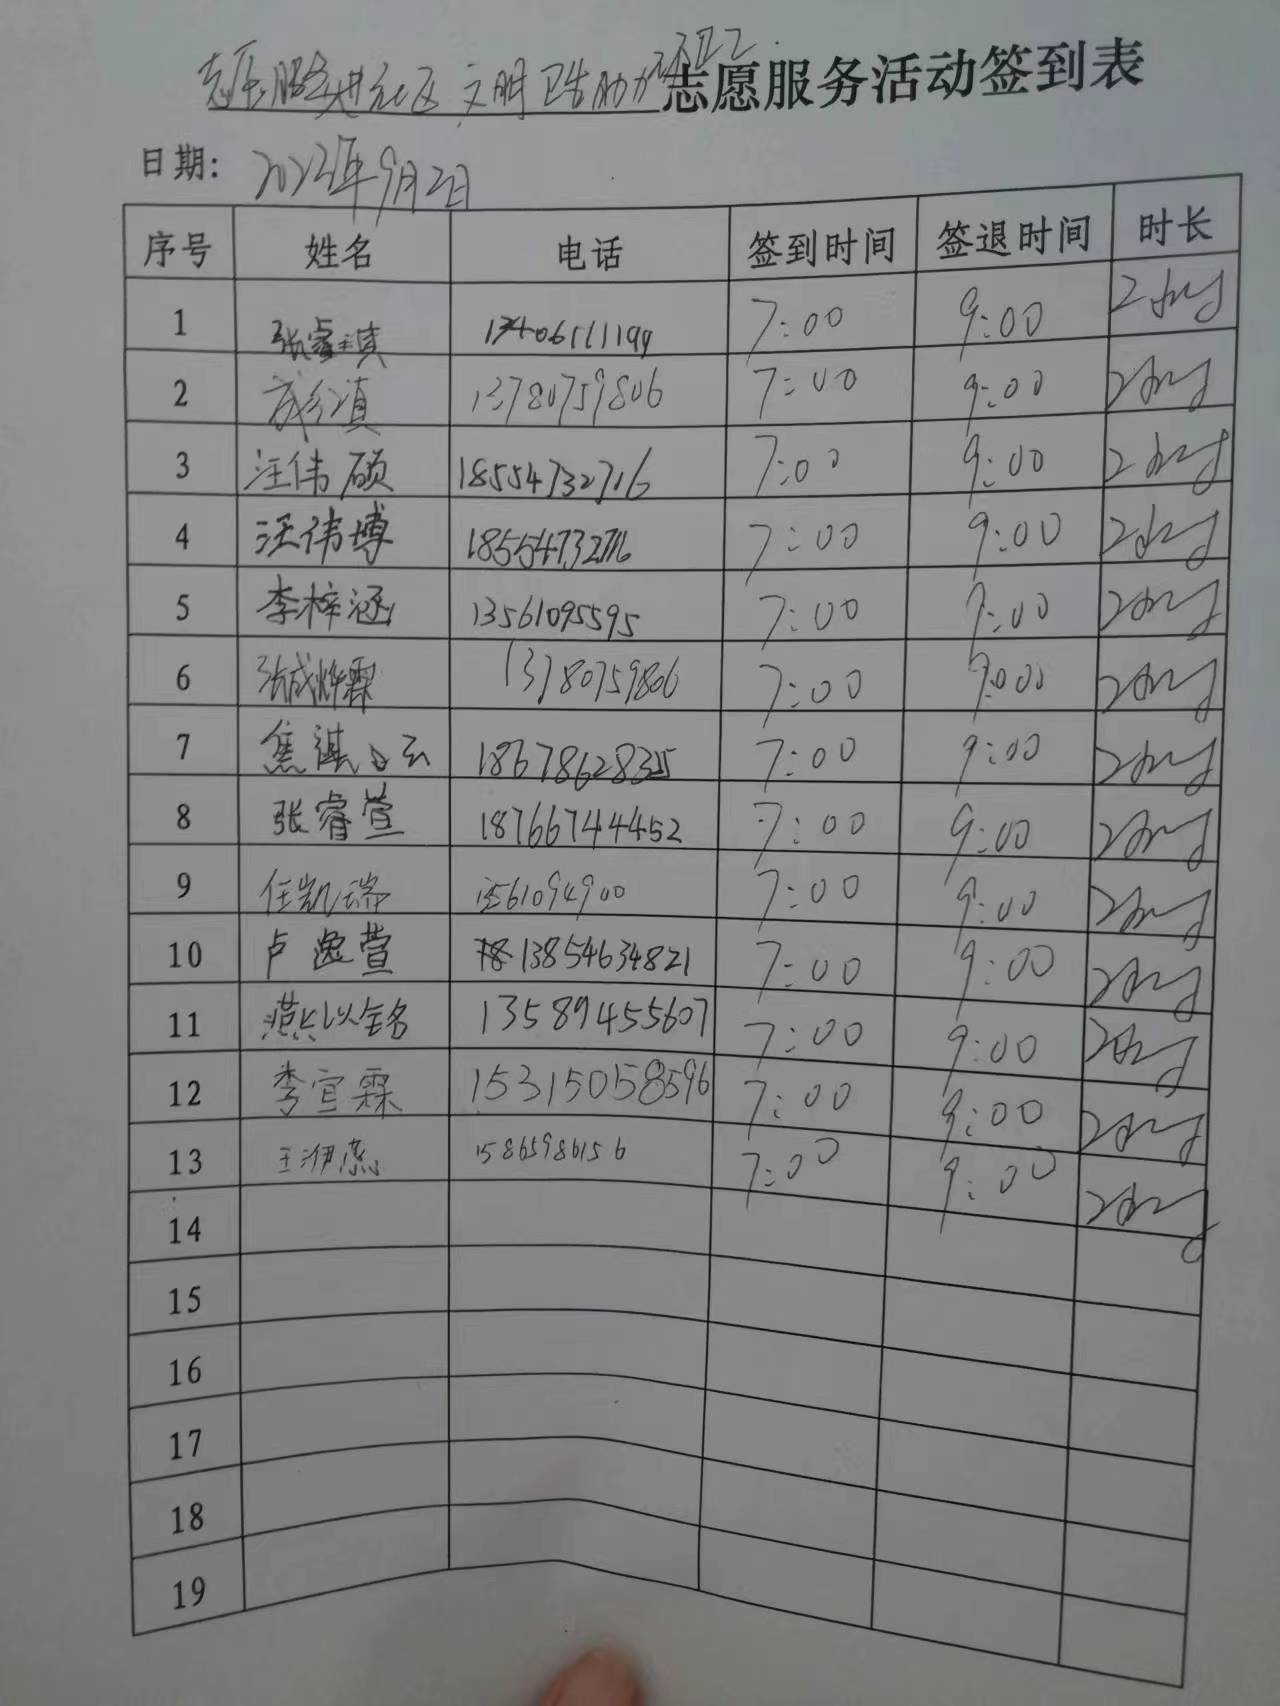 志愿服务进社区 文明卫生助力环卫工 志愿服务活动签到表
日期: 2023年9月2日
序号 姓名 电话 签到时间 签退时间 时长
1 张睿淇 13406111199 7:00 9:00 2小时
2 成红真 13780759806 7:00 9:00 2小时
3 汪伟硕 18554732716 7:00 9:00 2小时
4 汪伟博 18554732716 7:00 9:00 2小时
5 李梓涵 13561095595 7:00 9:00 2小时
6 张成烨霖 13780759806 7:00 9:00 2小时
7 焦淇 18678628335 7:00 9:00 2小时
8 张睿萱 18766744452 7:00 9:00 2小时
9 任凯瑞 13561094900 7:00 9:00 2小时
10 卢逸萱 13854634821 7:00 9:00 2小时
11 以铭 13589455607 7:00 9:00 2小时
12 李宜霖 15315058596 7:00 9:00 2小时
13 王伊 15865986156 7:00 9:00 2小时
14
15
16
17
18
19